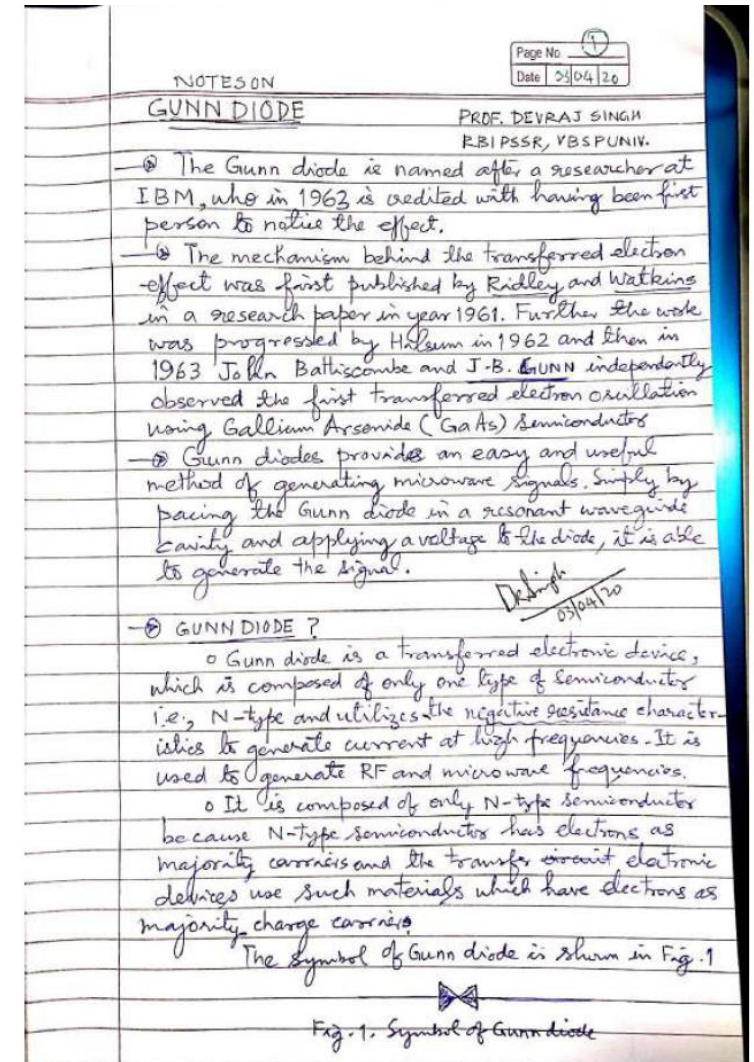 Page No ①
Date 03/04/20
NOTES ON
GUNN DIODE
PROF. DEVRAJ SINGH
RBIPSSR, VBSPUNIV.
The Gunn diode is named after a researcher at
IBM, who in 1963 is credited with having been first
person to notice the effect.
The mechanism behind the transferred electron
effect was first published by Ridley and Watkins
in a research paper in year 1961. Further the work
was progressed by Hilsum in 1962 and then in
1963 John Battiscombe and J.B. GUNN independently
observed the first transferred electron oscillation
using Gallium Arsenide (GaAs) Semiconductor
Gunn diodes provides an easy and useful
method of generating microwave signals. Simply by
pacing the Gunn diode in a resonant waveguide
cavity and applying a voltage to the diode, it is able
to generate the signal.
DRSingh
03/04/20
GUNN DIODE ?
o Gunn diode is a transferred electronic device,
which is composed of only one type of Semiconductor
i.e., N-type and utilizes the negative resistance character-
istics to generate current at high frequencies. It is
used to generate RF and microwave frequencies.
o It is composed of only N-type Semiconductor
because N-type semiconductor has electrons as
majority carriers and the transfer circuit electronic
devices use such materials which have electrons as
majority charge carriers
The Symbol of Gunn diode is shown in Fig.1
Fig.1. Symbol of Gunn diode